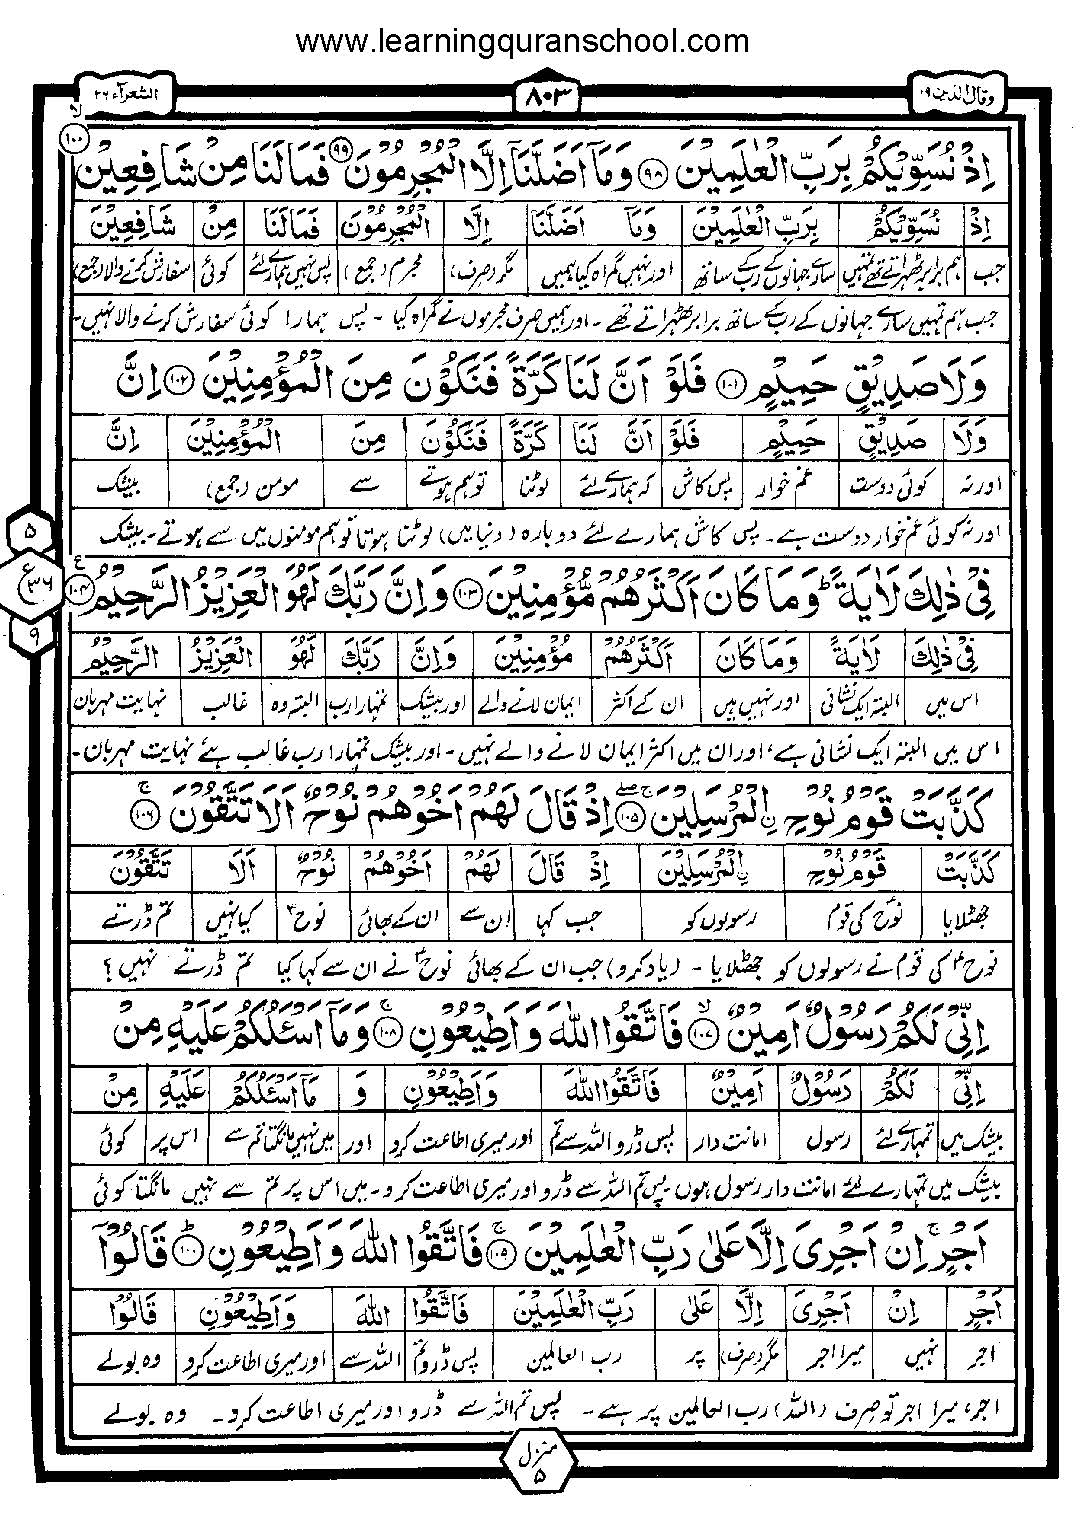 www.learningquranschool.com
وقال الذین ۱۹
۸۰۳
الشعرآء ۲۶
اِذْ نُسَوِّيْكُمْ بِرَبِّ الْعٰلَمِيْنَ ۹۸ وَمَآ اَضَلَّنَآ اِلَّا الْمُجْرِمُوْنَ ۹۹ فَمَا لَنَا مِنْ شَافِعِيْنَ ۱۰۰
اِذْ نُسَوِّيْكُمْ بِرَبِّ الْعٰلَمِيْنَ وَمَآ اَضَلَّنَآ اِلَّا الْمُجْرِمُوْنَ فَمَا لَنَا مِنْ شَافِعِيْنَ
جب ہم برابر ٹھہراتے تھے تمہیں سارے جہانوں کے رب کے ساتھ اور نہیں گمراہ کیا ہمیں مگر (صرف) مجرم (جمع) پس نہیں ہمارے لئے کوئی سفارش کرنے والا (جمع)
جب ہم تمہیں سارے جہانوں کے رب کے ساتھ برابر ٹھہراتے تھے ۔ اور ہمیں صرف مجرموں نے گمراہ کیا ۔ پس ہمارا کوئی سفارش کرنے والا نہیں۔
وَلَا صَدِيْقٍ حَمِيْمٍ ۱۰۱ فَلَوْ اَنَّ لَنَا كَرَّةً فَنَكُوْنَ مِنَ الْمُؤْمِنِيْنَ ۱۰۲ اِنَّ
وَلَا صَدِيْقٍ حَمِيْمٍ فَلَوْ اَنَّ لَنَا كَرَّةً فَنَكُوْنَ مِنَ الْمُؤْمِنِيْنَ اِنَّ
اور نہ کوئی دوست غم خوار پس کاش کہ ہمارے لئے لوٹنا تو ہم ہوتے سے مومن (جمع) بیشک
اور نہ کوئی غم خوار دوست ہے۔ پس کاش ہمارے لئے دوبارہ (دنیا میں) لوٹنا ہوتا تو ہم مومنوں میں سے ہوتے۔ بیشک
فِيْ ذٰلِكَ لَاٰيَةً ؕ وَمَا كَانَ اَكْثَرُهُمْ مُّؤْمِنِيْنَ ۱۰۳ وَاِنَّ رَبَّكَ لَهُوَ الْعَزِيْزُ الرَّحِيْمُ ۱۰۴
۵
ع ۳۶
۹
فِيْ ذٰلِكَ لَاٰيَةً وَمَا كَانَ اَكْثَرُهُمْ مُؤْمِنِيْنَ وَاِنَّ رَبَّكَ لَهُوَ الْعَزِيْزُ الرَّحِيْمُ
اس میں البتہ ایک نشانی اور نہیں ہیں ان کے اکثر ایمان لانے والے اور بیشک تمہارا رب البتہ وہ غالب نہایت مہربان
اس میں البتہ ایک نشانی ہے، اور ان میں اکثر ایمان لانے والے نہیں۔ اور بیشک تمہارا رب غالب ہے نہایت مہربان۔
كَذَّبَتْ قَوْمُ نُوْحِ ۨالْمُرْسَلِيْنَ ۱۰۵ اِذْ قَالَ لَهُمْ اَخُوْهُمْ نُوْحٌ اَلَا تَتَّقُوْنَ ۱۰۶
كَذَّبَتْ قَوْمُ نُوْحِ ۨالْمُرْسَلِيْنَ اِذْ قَالَ لَهُمْ اَخُوْهُمْ نُوْحٌ اَلَا تَتَّقُوْنَ
جھٹلایا نوح کی قوم رسولوں کو جب کہا ان سے ان کے بھائی نوح کیا نہیں تم ڈرتے
نوح کی قوم نے رسولوں کو جھٹلایا ۔ (یاد کرو) جب ان کے بھائی نوح نے ان سے کہا کیا تم ڈرتے نہیں؟
اِنِّيْ لَكُمْ رَسُوْلٌ اَمِيْنٌ ۱۰۷ فَاتَّقُوا اللّٰهَ وَاَطِيْعُوْنِ ۱۰۸ وَمَآ اَسْئَلُكُمْ عَلَيْهِ مِنْ
اِنِّيْ لَكُمْ رَسُوْلٌ اَمِيْنٌ فَاتَّقُوا اللّٰهَ وَاَطِيْعُوْنِ وَ مَآ اَسْئَلُكُمْ عَلَيْهِ مِنْ
بیشک میں تمہارے لئے رسول امانت دار پس ڈرو اللہ سے تم اور میری اطاعت کرو اور میں نہیں مانگتا تم سے اس پر کوئی
بیشک میں تمہارے لئے امانت دار رسول ہوں۔ پس تم اللہ سے ڈرو اور میری اطاعت کرو۔ میں اس پر تم سے نہیں مانگتا کوئی
اَجْرٍ ۚ اِنْ اَجْرِيَ اِلَّا عَلٰى رَبِّ الْعٰلَمِيْنَ ۱۰۹ فَاتَّقُوا اللّٰهَ وَاَطِيْعُوْنِ ۱۱۰ قَالُوْٓا
اَجْرٍ اِنْ اَجْرِيَ اِلَّا عَلٰى رَبِّ الْعٰلَمِيْنَ فَاتَّقُوا اللّٰهَ وَاَطِيْعُوْنِ قَالُوْا
اجر نہیں میرا اجر مگر (صرف) پر رب العالمین پس ڈرو تم اللہ سے اور میری اطاعت کرو وہ بولے
اجر، میرا اجر تو صرف (اللہ) رب العالمین پر ہے۔ پس تم اللہ سے ڈرو اور میری اطاعت کرو۔ وہ بولے
منزل ۵